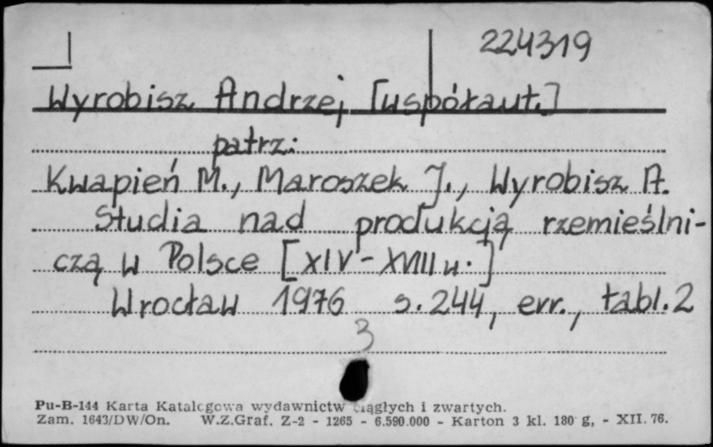 224319
Wyrobisz Andrzej [współaut.]
patrz:
Kwapień M., Maroszek J., Wyrobisz A.
Studia nad produkcją rzemieślni-
czą w Polsce [XIV-XVIII w.]
Wrocław 1976 s. 244, err., tabl. 2
3
Pu-B-144 Karta Katalogowa wydawnictw ciągłych i zwartych.
Zam. 1643/DW/On. W.Z.Graf. Z-2 - 1265 - 6.590.000 - Karton 3 kl. 180 g, - XII. 76.